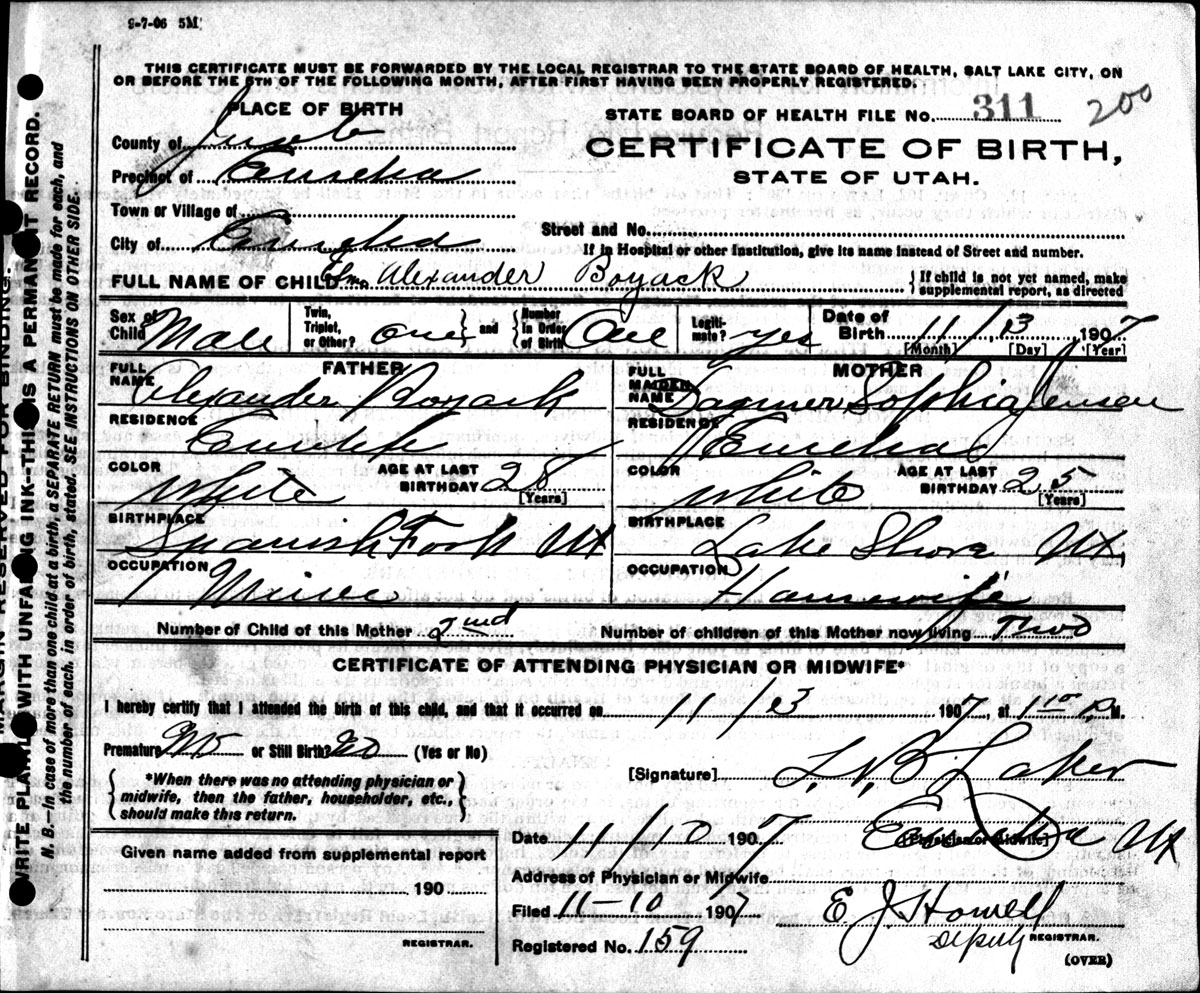 9-7-06 5M
THIS CERTIFICATE MUST BE FORWARDED BY THE LOCAL REGISTRAR TO THE STATE BOARD OF HEALTH, SALT LAKE CITY, ON
OR BEFORE THE 5TH OF THE FOLLOWING MONTH, AFTER FIRST HAVING BEEN PROPERLY REGISTERED.
PLACE OF BIRTH
STATE BOARD OF HEALTH FILE NO. 311 200
County of Juab
CERTIFICATE OF BIRTH,
Precinct of Eureka
STATE OF UTAH.
Town or Village of
Street and No.
City of Eureka
If in Hospital or other Institution, give its name instead of Street and number.
FULL NAME OF CHILD Alexander Boyack
If child is not yet named, make supplemental report, as directed
Sex of Child Male
Twin, Triplet, or Other? one and Number in Order of Birth One
Legitimate? yes
Date of Birth 11/13, 1907
[Month] [Day] [Year]
FATHER
FULL NAME Alexander Boyack
RESIDENCE Eureka
COLOR white
AGE AT LAST BIRTHDAY 28
[Years]
BIRTHPLACE Spanish Fork Ut
OCCUPATION Miner
MOTHER
FULL MAIDEN NAME Dagmer Sophia Jensen
RESIDENCE Eureka
COLOR white
AGE AT LAST BIRTHDAY 25
[Years]
BIRTHPLACE Lake Shore Ut,
OCCUPATION Housewife
Number of Child of this Mother 2nd
Number of children of this Mother now living Two
CERTIFICATE OF ATTENDING PHYSICIAN OR MIDWIFE*
I hereby certify that I attended the birth of this child, and that it occurred on 11/13 1907, at 1 10 P.M.
Premature No or Still Birth? No (Yes or No)
*When there was no attending physician or
midwife, then the father, householder, etc.,
should make this return.
[Signature]
[Physician or Midwife]
Date 11/10 1907
Eureka Ut
Address of Physician or Midwife
Given name added from supplemental report
190
REGISTRAR.
Filed 11-10 1907
E J Howell
Deputy REGISTRAR.
Registered No. 159
(OVER)
MARGIN RESERVED FOR BINDING.
WRITE PLAINLY WITH UNFADING INK--THIS IS A PERMANENT RECORD.
N. B.—In case of more than one child at a birth, a SEPARATE RETURN must be made for each, and
the number of each, in order of birth, stated. SEE INSTRUCTIONS ON OTHER SIDE.